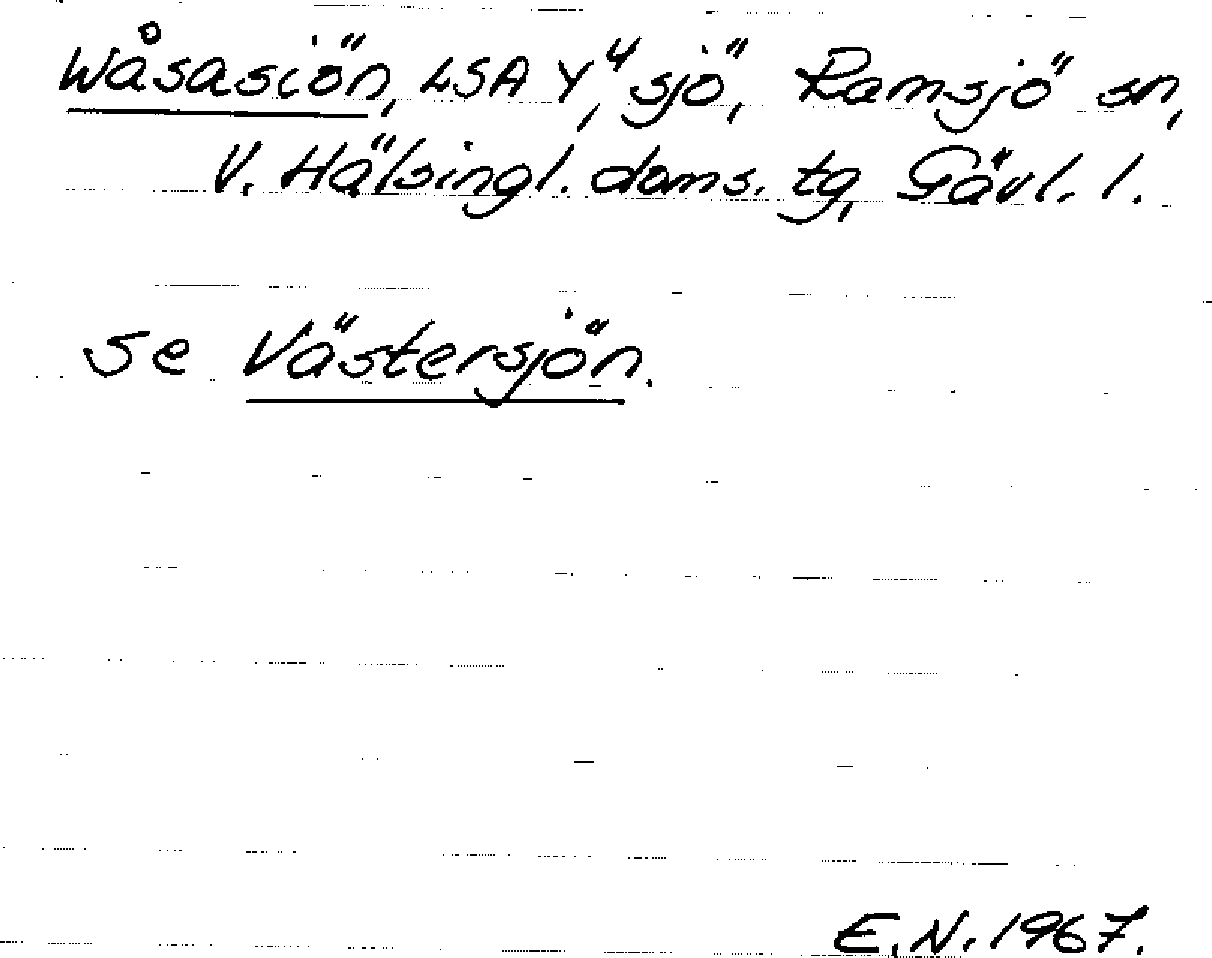 Wåsasiön, LSA Y, "sjö", Ramsjö sn,
V. Hälsingl. doms. tg, Gävl. l.
se Västersjön.
E.N. 1967.